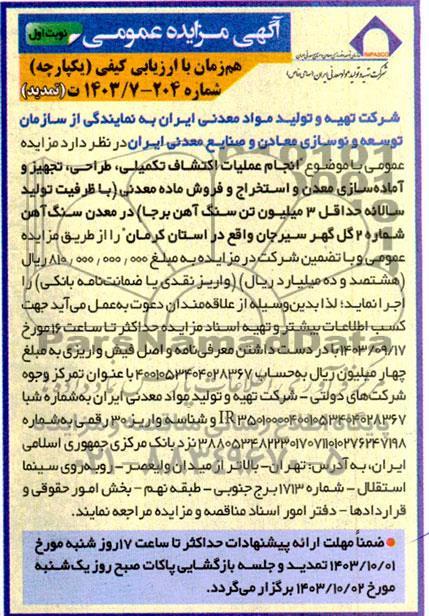 آگهی مزایده عمومی
نوبت اول
هم‌زمان با ارزیابی کیفی (یکپارچه)
شماره ۲۰۴-۱۴۰۳/۷ ت (تمدید)
IMPASCO
شرکت تهیه و تولید مواد معدنی ایران (سهامی خاص)
شرکت تهیه و تولید مواد معدنی ایران به نمایندگی از سازمان
توسعه و نوسازی معادن و صنایع معدنی ایران در نظر دارد مزایده
عمومی با موضوع "انجام عملیات اکتشاف تکمیلی، طراحی، تجهیز و
آماده‌سازی معدن و استخراج و فروش ماده معدنی (با ظرفیت تولید
سالانه حداقل ۳ میلیون تن سنگ آهن برجا) در معدن سنگ آهن
شماره ۲ گل گهر سیرجان واقع در استان کرمان" را از طریق مزایده
عمومی و با تضمین شرکت در مزایده به مبلغ ۸۱۰/۰۰۰/۰۰۰/۰۰۰ ریال
(هشتصد و ده میلیارد ریال) (واریز نقدی یا ضمانت‌نامه بانکی) را
اجرا نماید؛ لذا بدین‌وسیله از علاقه‌مندان دعوت به‌عمل می‌آید جهت
کسب اطلاعات بیشتر و تهیه اسناد مزایده حداکثر تا ساعت ۱۶ مورخ
۱۴۰۳/۰۹/۱۷ با در دست داشتن معرفی‌نامه و اصل فیش واریزی به مبلغ
چهار میلیون ریال به‌حساب ۴۰۰۱۰۵۳۴۰۴۰۲۸۳۶۷ با عنوان تمرکز وجوه
شرکت‌های دولتی - شرکت تهیه و تولید مواد معدنی ایران به‌شماره شبا
و شناسه واریز ۳۰ رقمی به‌شماره
نزد بانک مرکزی جمهوری اسلامی
ایران، به آدرس: تهران- بالاتر از میدان ولیعصر - روبه‌روی سینما
استقلال - شماره ۱۷۱۳ برج جنوبی - طبقه نهم - بخش امور حقوقی و
قراردادها - دفتر امور اسناد مناقصه و مزایده مراجعه نمایند.
ضمناً مهلت ارائه پیشنهادات حداکثر تا ساعت ۱۷ روز شنبه مورخ
۱۴۰۳/۱۰/۰۱ تمدید و جلسه بازگشایی پاکات صبح روز یک‌شنبه
مورخ ۱۴۰۳/۱۰/۰۲ برگزار می‌گردد.
ParsNamadData